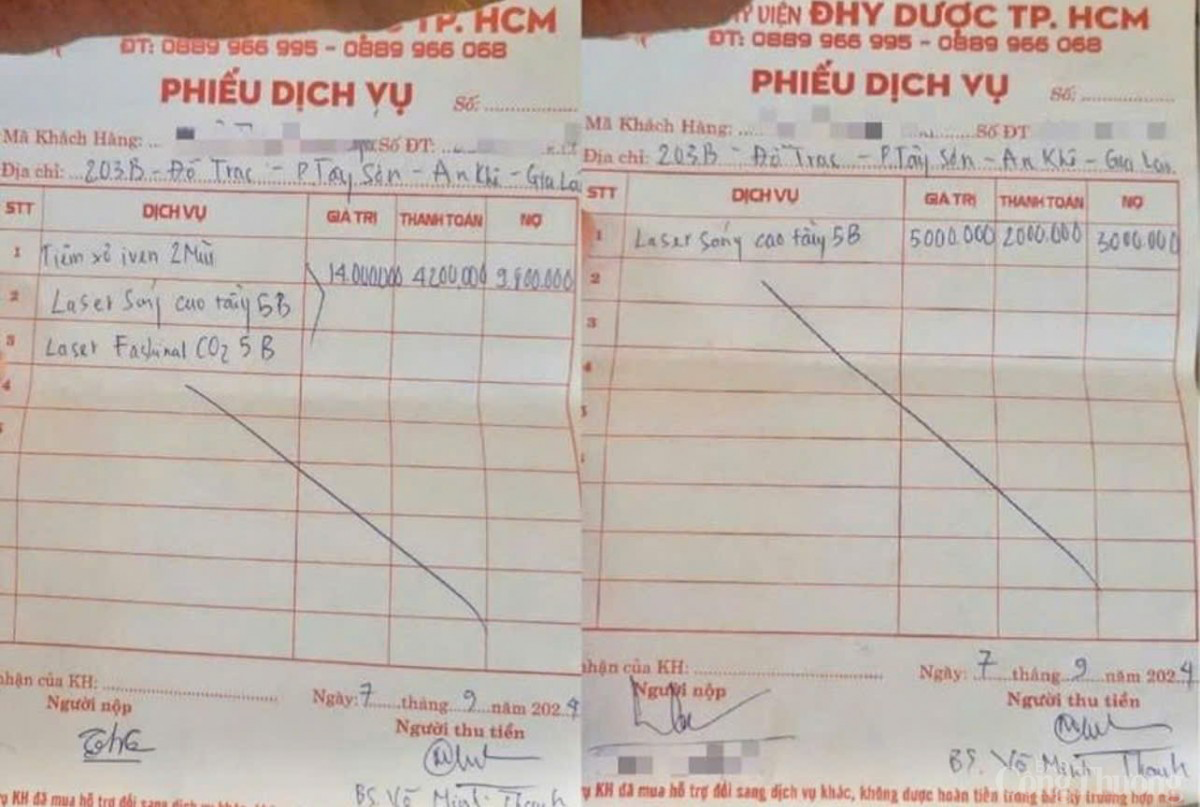 TP. HCM
ĐT: 0889 966 995 - 0889 966 068
PHIẾU DỊCH VỤ
Số:
Mã Khách Hàng:
Số ĐT:
Địa chỉ: 203B - Đỗ Trạc - P. Tây Sơn - An Khê - Gia Lai
STT DỊCH VỤ GIÁ TRỊ THANH TOÁN NỢ
1 Tiêm 2 Mũi
14.000.000 4200.000 9.800.000
2 Laser Sóng cao tầng 5B
3 Laser CO2 5 B
4
nhận của KH:
Ngày: 7 tháng 9 năm 2024
Người nộp
Người thu tiền
BS. Võ Minh Thanh
KH đã mua hỗ trợ đổi sang dịch vụ khác
VIỆN ĐHY DƯỢC TP. HCM
ĐT: 0889 966 995 - 0889 966 068
PHIẾU DỊCH VỤ
Số:
Mã Khách Hàng:
Số ĐT
Địa chỉ: 203B - Đỗ Trạc - P. Tây Sơn - An Khê - Gia Lai
STT DỊCH VỤ GIÁ TRỊ THANH TOÁN NỢ
1 Laser sóng cao tầng 5B 5000.000 2000.000 3000.000
2
3
4
nhận của KH:
Ngày: 7 tháng 9 năm 2024
Người nộp
Người thu tiền
BS. Võ Minh Thanh
Công Thương
KH đã mua hỗ trợ đổi sang dịch vụ khác, không được hoàn tiền trong bất kỳ trường hợp